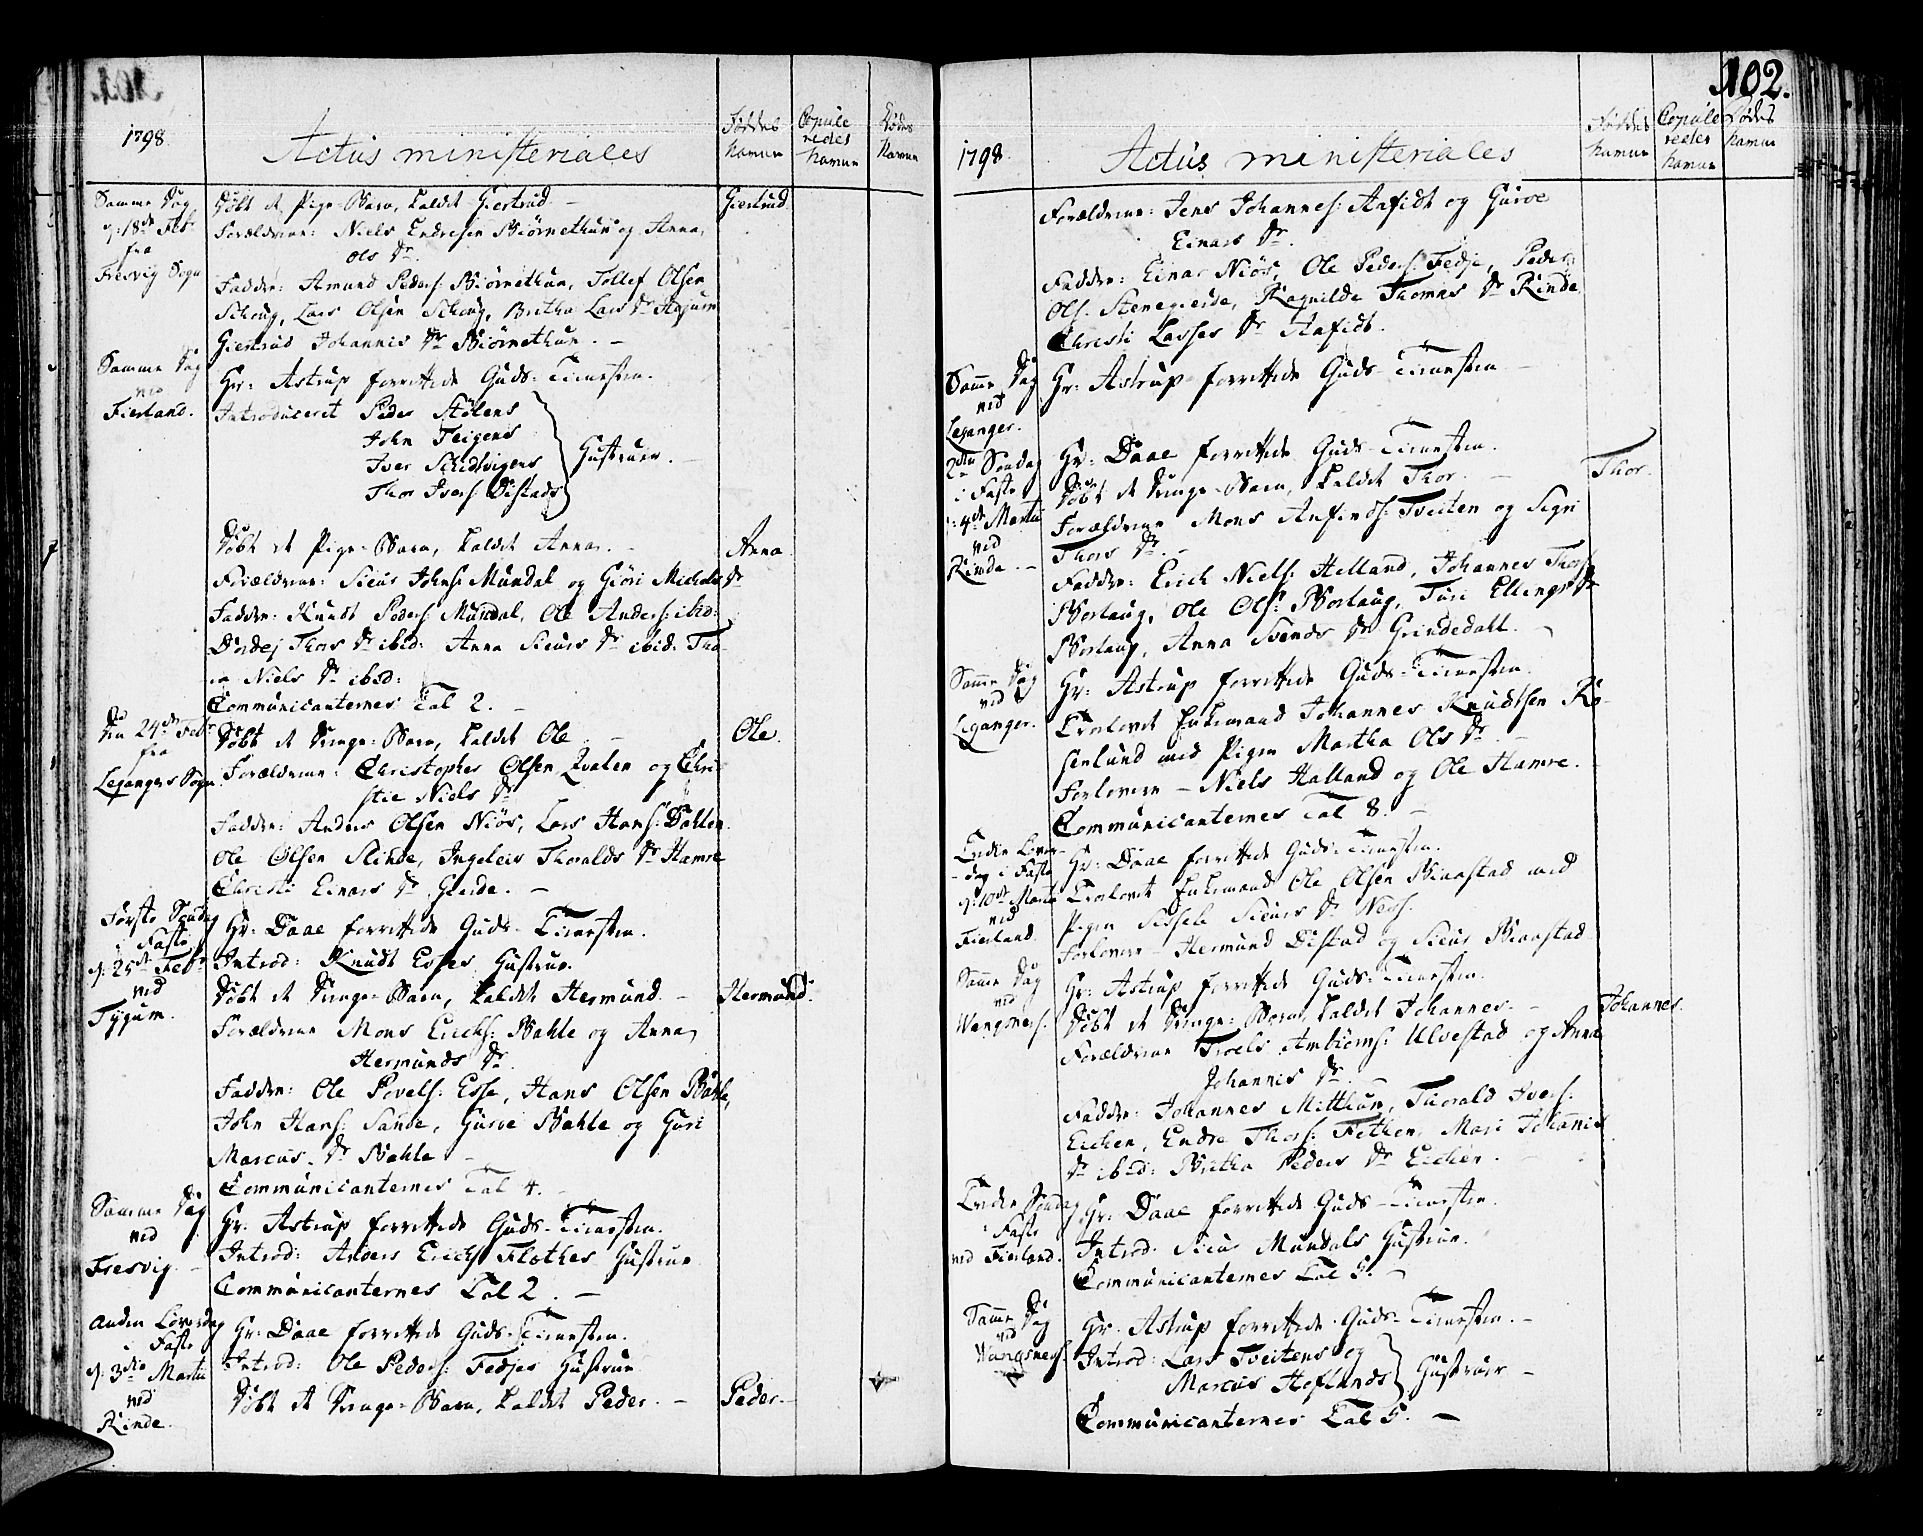 1798.
Actus ministeriales
Føddes Navne
Copuleredes Navne
Dødes Navne
Samme Dag
d: 18de Feb:
fra
Fresvig Sogn
Døbt et Pige-Barn, kaldet Giertrud –
Giertrud
Forældrene: Niels Endresen Biørnethun og Anna
Ols Dr.
Faddere: Amund Peders: Biørnethun, Tollef Olsen
Lars Olsen Britha Lars Dr
Giertrud Johannis Dr Biørnethun. –
Samme Dag
ved
Fierland.
Hr: Astrup forrettede Guds-Tienesten.
Introduceret Peder Stølens
John Teigens
Iver
Thor Ivers: Distads
Hustruer. –
Døbt et Pige-Barn, kaldet Anna. –
Anna
Forældrene: Siur Johns: Mundal og Giøri Michels Dr
Faddere: Knudt Peders: Mundal, Ole Anders: ibid:
Thors Dr ibid: Anna Siurs Dr ibid: Tho-
Niels Dr ibid:
Communicanternes Tal 2. –
Den 24de Febr
fra
Legangers Sogn
Døbt et Drenge-Barn, kaldet Ole –
Ole.
Forældrene: Christopher Olsen Qvalen og Chri-
stie Niels Dr
Faddere: Anders Olsen Niøs, Lars Hans: Dahlen
Ole Olsen Slinde, Ingeleiv Thoralds Dr Hamre
Christi Einars Dr Gierde. –
Første Søndag
i Faste
d: 25de Febr
ved
Tygum.
Hr: Daae forrettede Guds-Tienesten.
Introd: Knudt Esses Hustrue.
Døbt et Drenge-Barn, kaldet Hermund. –
Hermund.
Forældrene Mons Erichs: Bahle og Anna
Hermunds Dr.
Faddere: Ole Povels: Esse, Hans Olsen Bahle,
John Hans: Sande, Gurve Bahle og Guri
Marcus Dr Bahle –
Communicanternes Tal 4. –
Samme Dag
ved
Fresvig. –
Hr: Astrup forrettede Guds-Tienesten.
Introd: Anders Erichs: Flothes Hustrue
Communicanternes Tal 2. –
Anden Løverdag
i Faste
d: 3die Martii
ved
Rinde.
Hr: Daae forrettede Guds-Tienesten.
Introd: Ole Peders: Fedjes Hustrue
Døbt et Drenge-Barn, kaldet Peder. –
Peder. –
102.
1798.
Actus ministeriales
Fødtes Navne
Copuleredes Navne
Dødes Navne
Forældrene: Jens Johannes: Aafedt og Gurve
Einars Dr.
Faddere: Einar Niøs, Ole Peders: Fedje, Peder
Ols: Stenegierde, Ragnilde Thomas Dr Rinde
Christi Lasses Dr Aafedt.
Samme Dag
ved
Leganger.
Hr: Astrup forrettede Guds-Tienesten –
2den Søndag
i Faste
d: 4de Martii
ved
Rinde. –
Hr: Daae forrettede Guds-Tienesten.
Døbt et Drenge-Barn, kaldet Thor. –
Thor.
Forældrene Mons Anfinds: Tveiten og Sigri
Thors Dr. –
Faddere: Erich Niels: Helland, Johannes Thors:
Borlaug, Ole Ols: Borlaug, Turi Ellings Dr
Borlaug, Anna Svends Dr Grindedall. –
Samme Dag
ved
Leganger.
Hr: Astrup forrettede Guds-Tienesten.
Trolovet Enkemand Johannes Knudtsen Ro-
senlund med Pigen Martha Ols Dr. –
Forlovere – Niels Halland og Ole Hamre.
Communicanternes Tal 8. –
Tredie Løver-
dag i Faste
d: 10de Martii
ved
Fierland.
Hr: Daae forrettede Guds-Tienesten.
Trolovet Enkemand Ole Olsen Baastad med
Pigen Sissele Siurs Dr
Forlovere – Hermund Distad og Siur Baastad
Samme Dag
ved
Wangsnes.
Hr: Astrup forrettede Guds-Tienesten.
Døbt et Drenge-Barn, kaldet Johannes. –
Johannes.
Forældrene Troels Ambiørns: Ulvestad og Anna
Johannis Dr. –
Faddere: Johannes Mitthun, Thorald Ivers:
Eichen, Endre Thors: Fethen, Mari Johannis
Dr ibid: Britha Peders Dr Eichen. –
Tredie Søndag
i Faste
ved Fierland.
Hr: Daae forrettede Guds-Tienesten.
Introd: Siur Mundals Hustrue.
Communicanternes Tal 5. –
Samme Dag
ved
Wangsnes.
Hr. Astrup forrettede Guds-Tienesten. –
Introd: Lars Tveitens og
Marcus Hoflands
Hustruer –
Communicanternes Tal 5. –